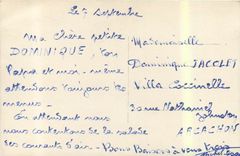 Le 7 Septembre
Ma chère petite
DOMINIQUE, ton
Papa et moi-même
attendons toujours les
menus.
En attendant nous
nous contentons de la salade
ses courants d'air. Bons Baisers à vous trois
Mademoiselle
Dominique JACOLET
Villa Coccinelle
rue Nathaniel
Johnston
ARCACHON